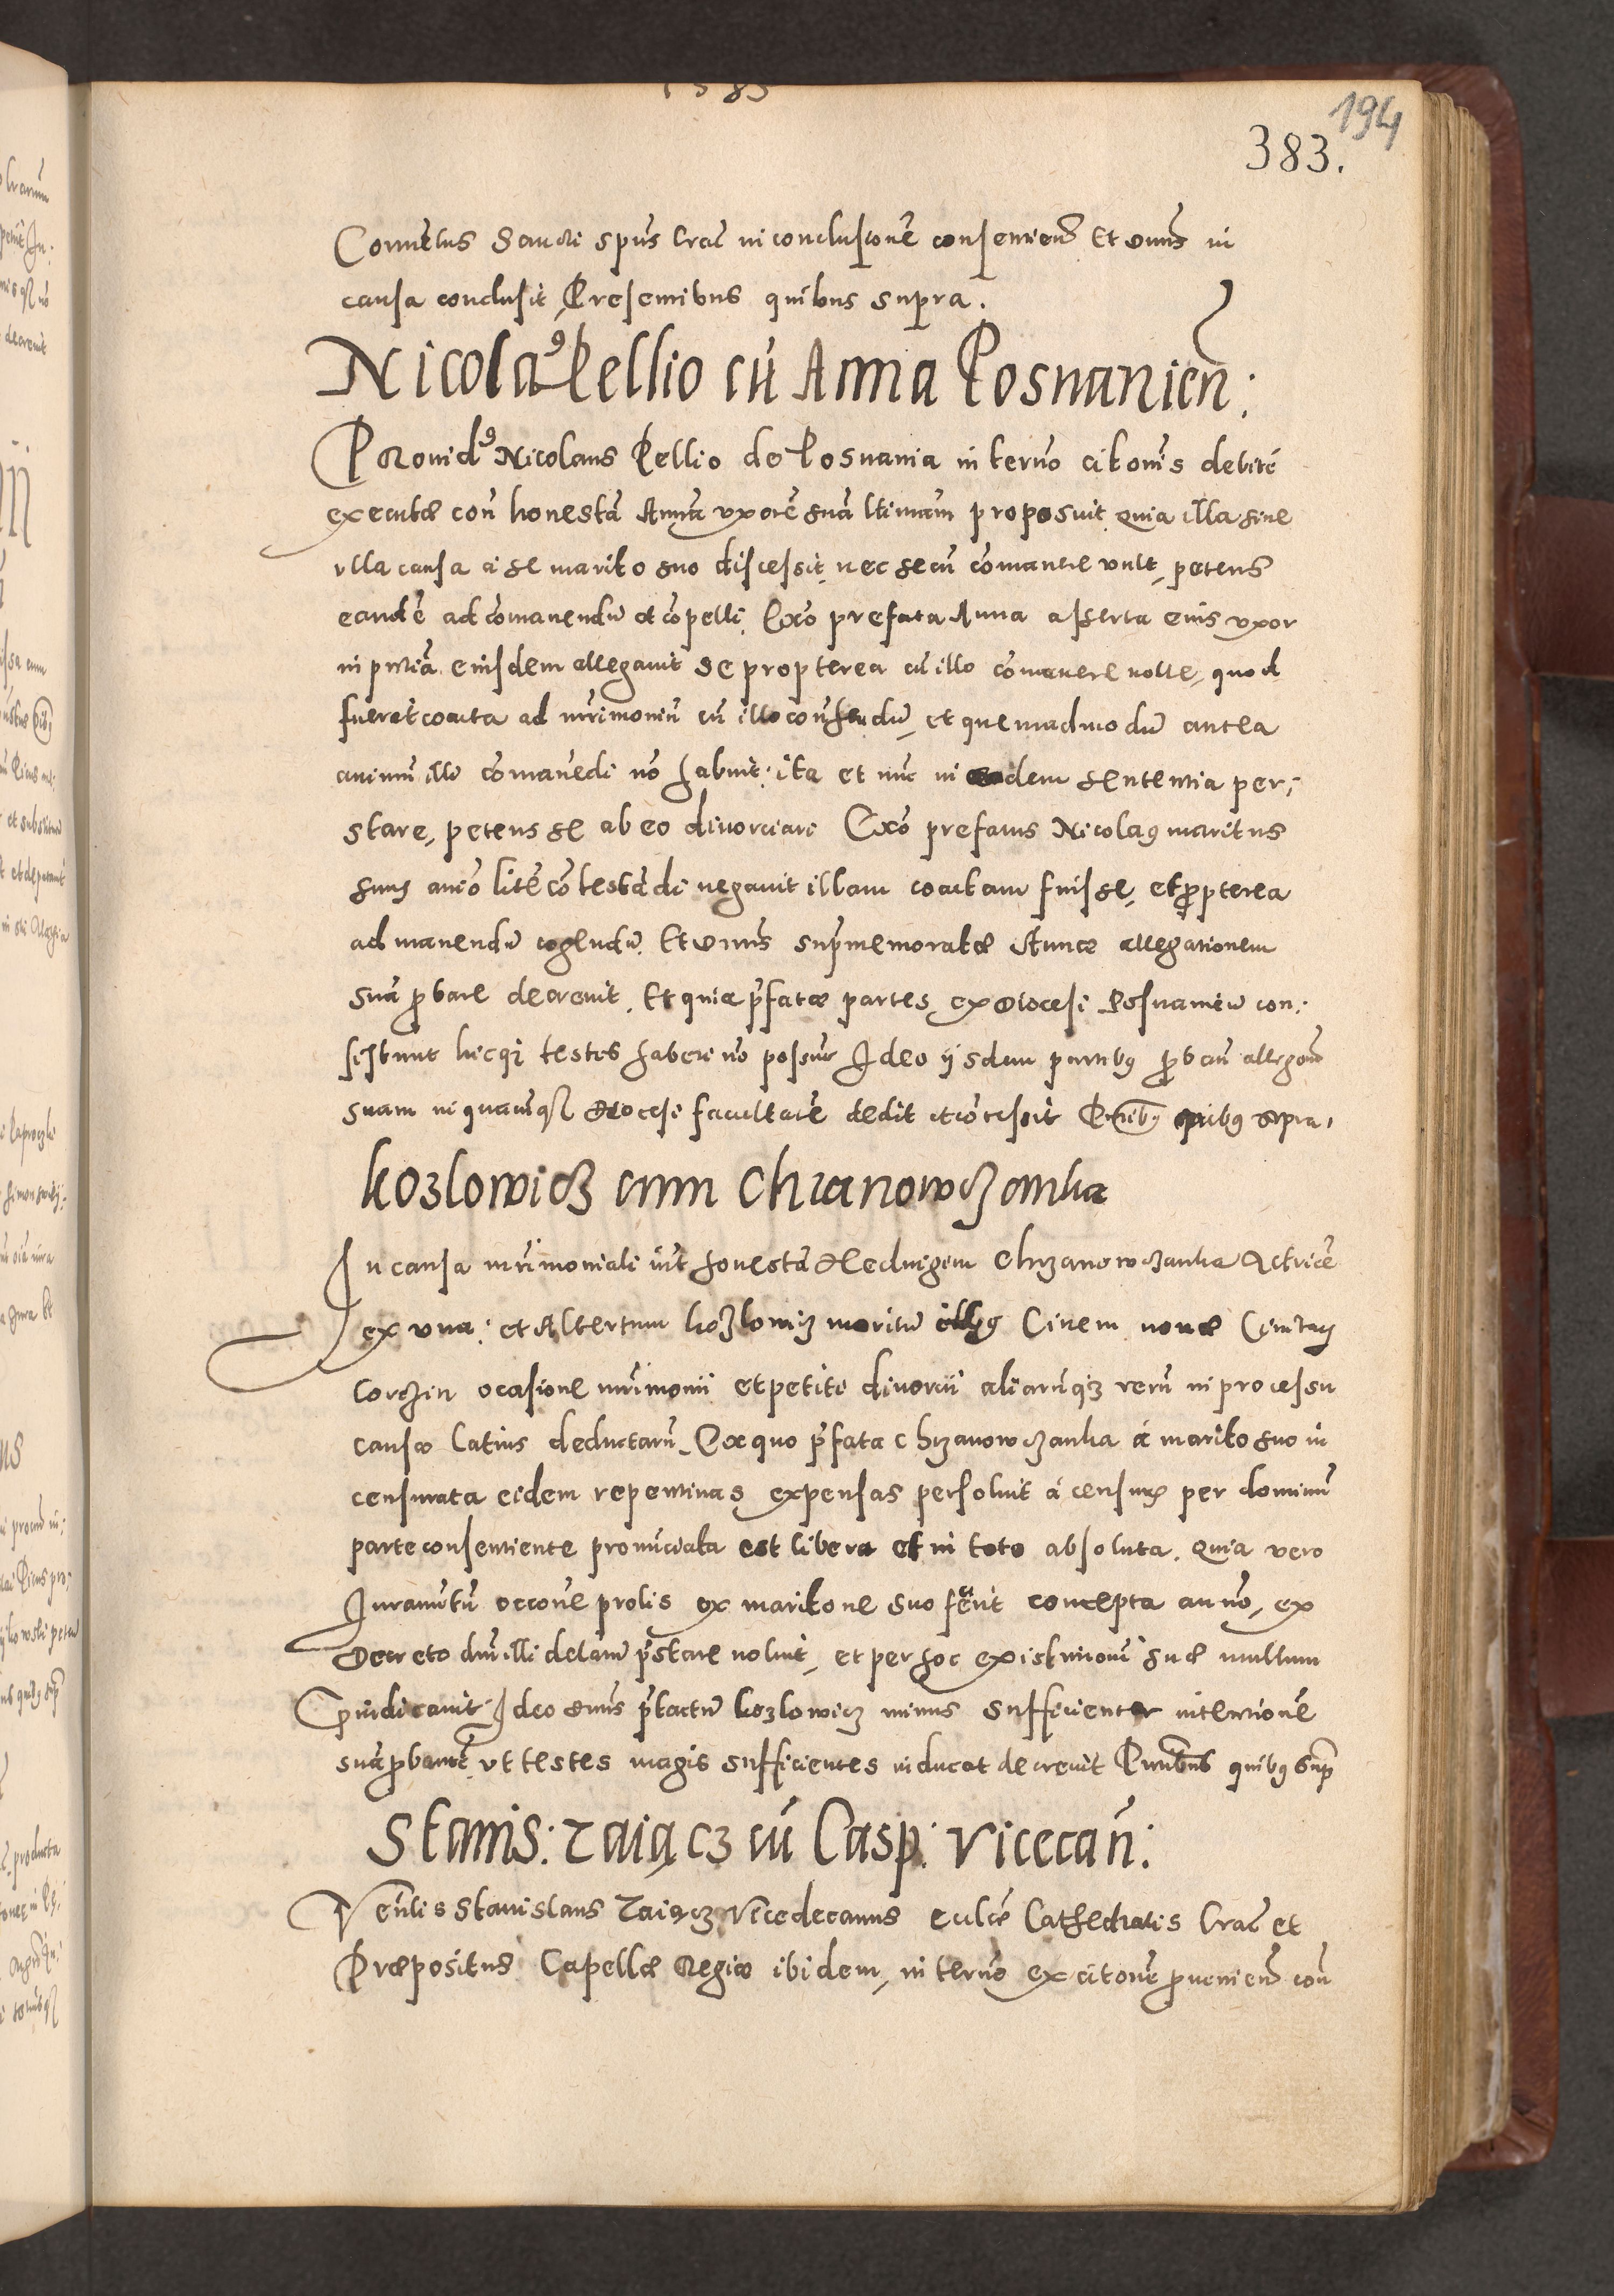 1585
194
383.
Conuetus Sancti spūs Crac̄ in conclusionē consentien̄ Et dnūs in
causa conclusit, Presentibus quibus supra.
Nicola9 Pellio cū Anna Posnanien̄:
Prouid9 Nicolaus Pellio de Posnania in termo citonis debite
executæ con honestā Annā vxorē suā ltimam proposuit quia illa sine
vlla causa a se marito suo discessit, nec secū comanere vult, petens
eandē ad comanendū cōpelli. Exo prefata Anna asserta eius vxor
in pntiā eiusdem allegauit se propterea cū illo comanere nolle, quod
fuerit coacta ad mr̄imoniū cū illo contrahendū, et quemadmodū antea
animū illū comanēdi nō habuit: ita et nūc in eadem sententia per:
stare, petens se ab eo diuorciari Exo prefatus Nicolaus maritus
suus anīo litē cōtestādi negauit illam coactam fuisse, et propterea
ad manendū cogendū. Et dnūs supmemoratæ Annæ allegationem
suā probare decreuit. Et quia p̄fatæ partes ex Diocesi Posnanien̄ con:
sistunt hicq3 testes haberi nō possunt Ideo ijsdem partibus probān allegaōn
suam in quacūq3 diocesi facultatē dedit et cōcessit Pn̄tib9 quibus supra.
Kozlowicz cum Chranowczanka
In causa mr̄imoniali int̄ honestā Hedwigem Chrzanowczanka Actricē
ex vna: et Altertum Kozlowicz maritū illius Ciuem nouæ Ciuitatis
Corczin ocasione mr̄imonii et petiti diuorcii aliarūq3 rerū in processu
causæ latius deductarū. Ex quo p̄fata Chrzanowczanka á marito suo in
censurata eidem repentinas expensas persoluit á censuris per dominū
parte consentiente pronūciata est libera et in toto absoluta. Quia vero
Iuramentū occone prolis ex marito ne suo fuerit concepta an nō, ex
Decreto dnī illi delatum p̄stare noluit, et per hoc existimōni suæ multum
præiudicauit Ideo dnūs p̄tactū Kozlowicz minus sufficienter intentionē
suā probantē, vt testes magis sufficientes inducat decreuit Pn̄tibus quibus sup
Stanis: Zaiącz cū Casp: Vicecan̄:
Ven̄lis Stanislaus Zaiącz Vicedecanus eccl̄æ Cathedralis Crac̄ et
Præpositus Capellæ Regiæ ibidem, in termo ex citonē proueniēn con